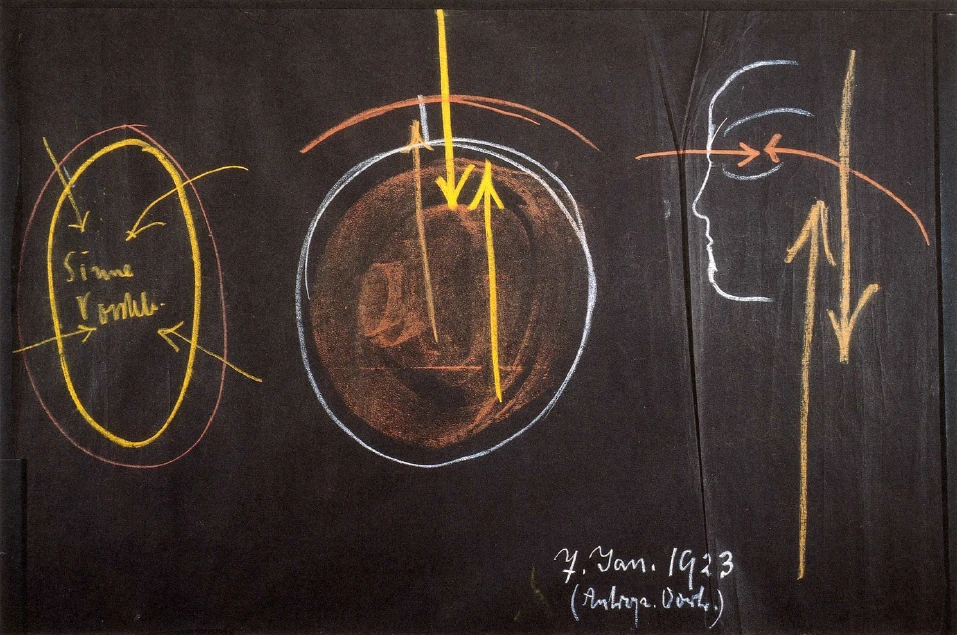 Sinne
Vorstell.
7. Jan. 1923
(Anthrop. Vortr.)